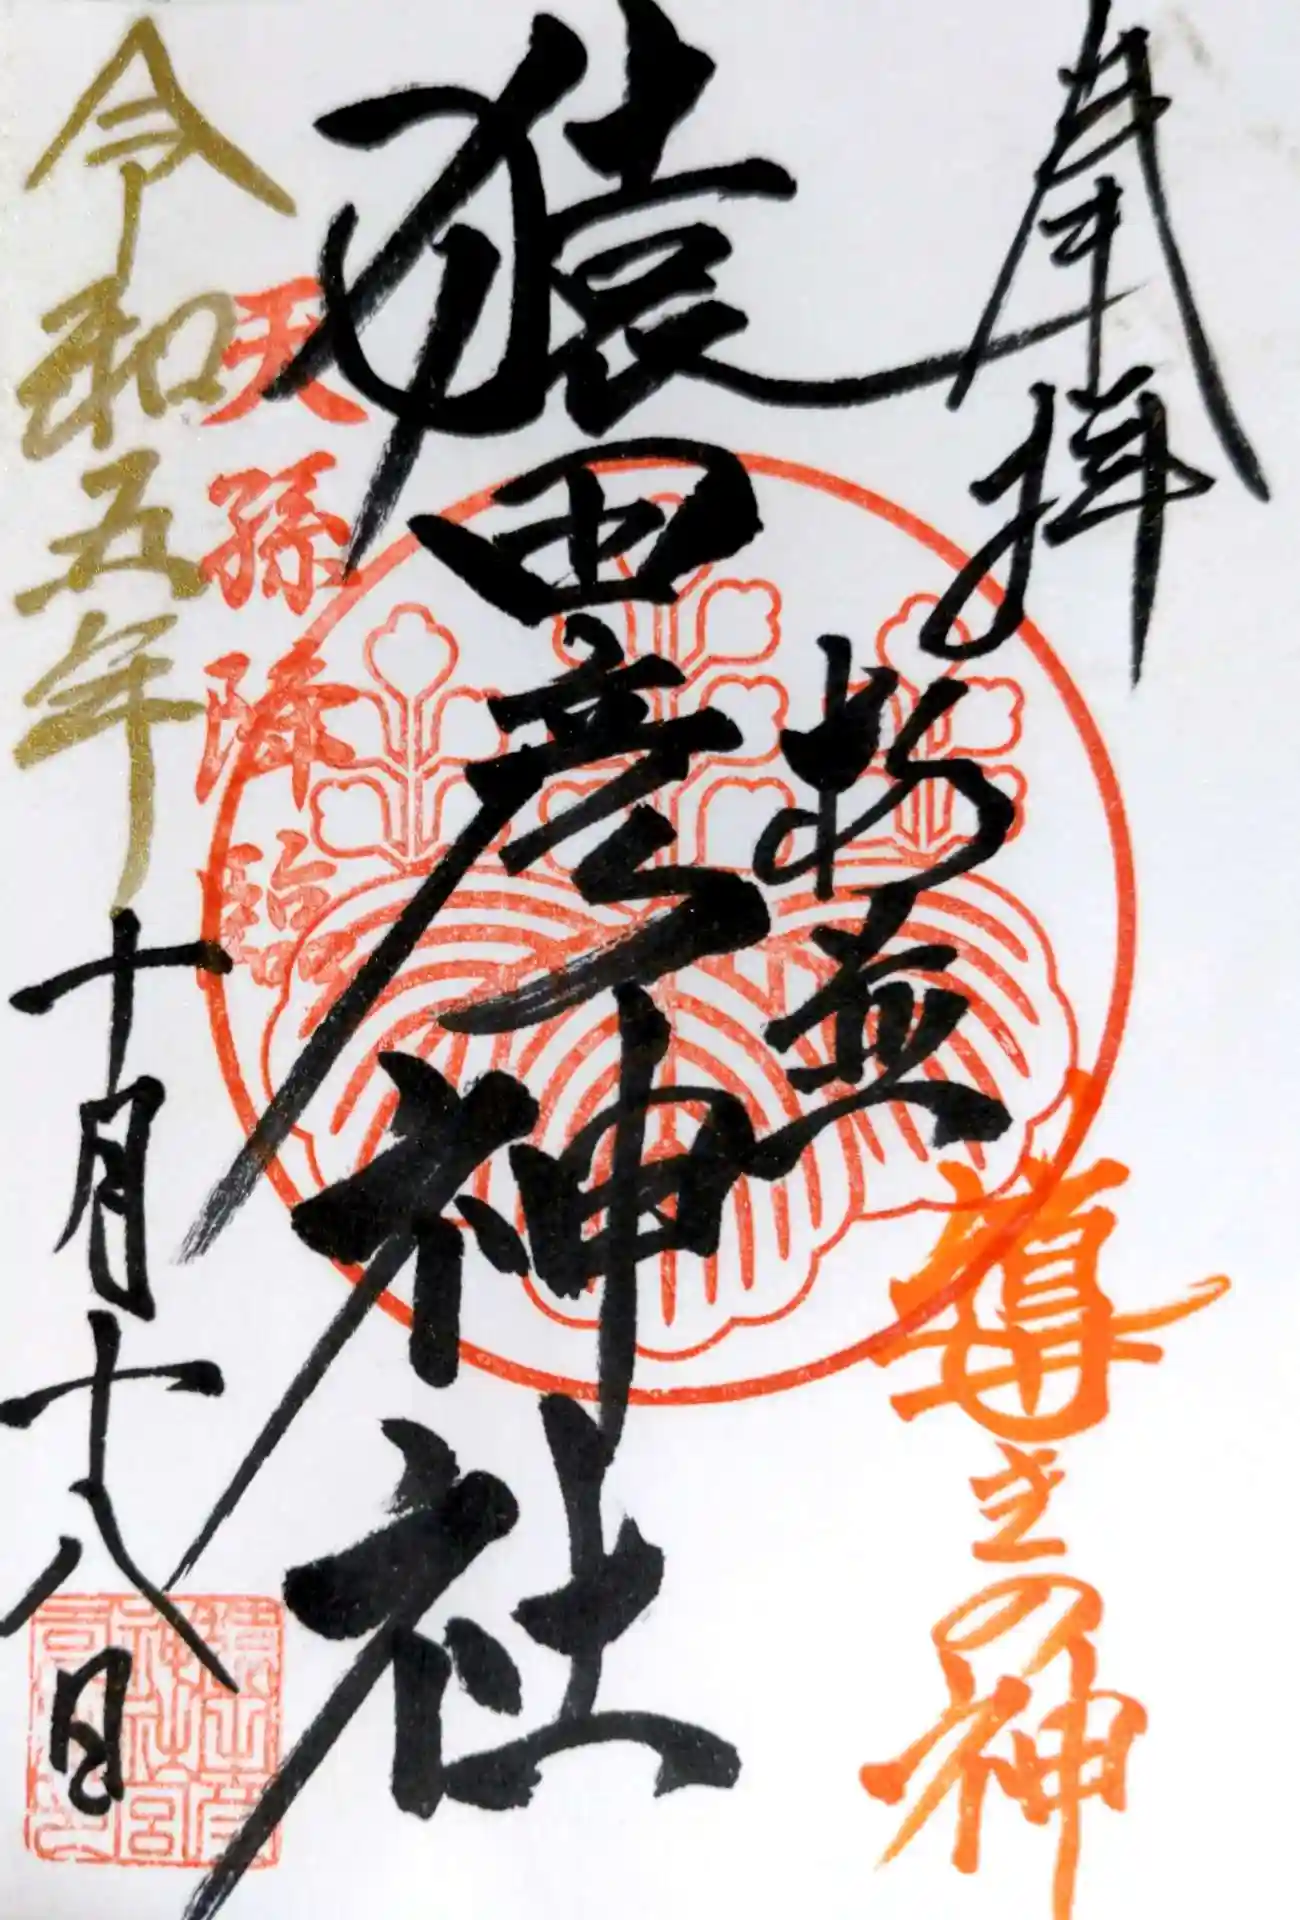 奉拝
杉並
猿田彦神社
導きの神
天孫降臨
令和五年
十月十八日